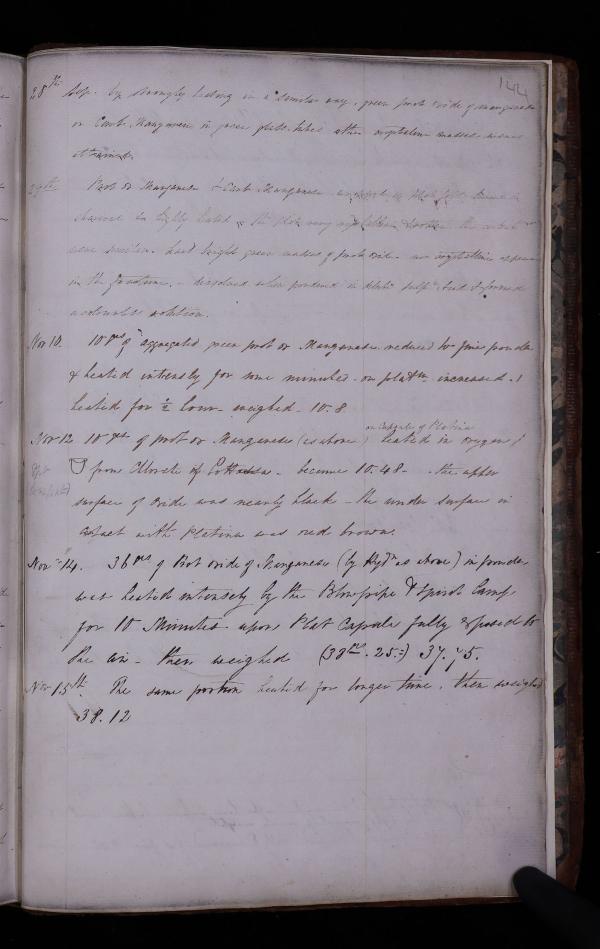 144
28th Sep. by strongly heating in a similar way. green prot oxide of manganese
or Carb. Manganese in green glass tubes other crystalline masses were
obtained.
29th Prot ox Manganese & Carb Manganese
charcoal & highly heated the
were similar. hard bright green masses of prot oxide. no crystalline appear
in the fracture. - dissolved when powdered in dilute sulpc acid & formed
a colourless solution.
Nov 10. 10 grs of aggregated green prot ox Manganese reduced to fine powder
& heated intensely for some minutes on platm increased .1
heated for ½ hour weighed 10.8
on Capsule of Platina
Nov 12 10 grs of prot ox Manganese (as above) heated in oxygen
from Chlorate of Pottassa - became 10.48 - the upper
surface of oxide was nearly black - the under surface in
contact with Platina was red brown.
Nov 14. 36 grs of Prot oxide of Manganese (by Hydn as above) in powder
was heated intensely by the Blowpipe & Spirit Lamp
for 10 Minutes upon Plat Capsule fully exposed to
the air - then weighed (38grs. 25.=) 37.75.
Nov 15th. The same portion heated for longer time. then weighed
38.12